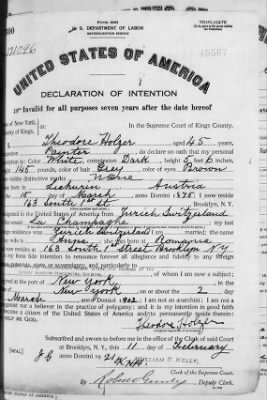 Form 2203
U. S. DEPARTMENT OF LABOR
NATURALIZATION SERVICE
TRIPLICATE
UNITED STATES OF AMERICA
DECLARATION OF INTENTION
Invalid for all purposes seven years after the date hereof
of New York,
of Kings,
ss:
In the Supreme Court of Kings County.
Theodore Holzer aged 45 years,
Painter, do declare on oath that my personal
is: Color White, complexion Dark, height 5 feet 6 inches,
145 pounds, color of hair Grey color of eyes Brown
visible distinctive marks None
Austria
15 day of March, anno Domini 1875; I now reside
163 South 1st St Brooklyn, N.Y.
United States of America from Zurich Switzerland
Champagne; my last
was Zurich Switzerland; I am married; the name
; she was born at Romania
now resides at 163 South 1st Street Brooklyn N.Y.
my bona fide intention to renounce forever all allegiance and fidelity to any foreign
potentate, state, or sovereignty, and particularly to
of whom I am now a subject;
at the port of New York
New York on or about the 2 day
March anno Domini; I am not an anarchist; I am not a
nor a believer in the practice of polygamy; and it is my intention in good faith
become a citizen of the United States of America and to permanently reside therein:
HELP ME GOD.
Theodore Holzer
Subscribed and sworn to before me in the office of the Clerk of said Court
at Brooklyn, N.Y., this 11 day of February
anno Domini 1921
WILLIAM E. KELLY,
Clerk of the Supreme Court.
By Deputy Clerk.